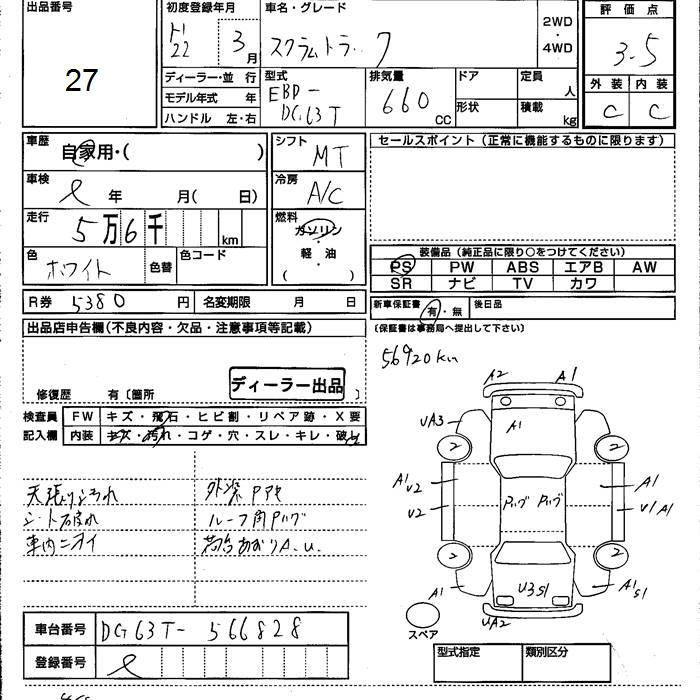 出品番号
27
初度登録年月
H22 3月
車名・グレード
スクラムトラック
2WD・4WD
評価点
3.5
外装 内装
C C
ディーラー・並行
モデル年式 年
ハンドル 左・右
型式
EBD-DG63T
排気量
660 CC
ドア
形状
定員 人
積載 kg
車歴
自家用・( )
車検
年 月( 日)
走行
5万6千 km
色
ホワイト
色替
色コード
シフト
MT
冷房
A/C
燃料
ガソリン・軽油
( )
セールスポイント(正常に機能するものに限ります)
装備品(純正品に限り○をつけてください)
PS PW ABS エアB AW
SR ナビ TV カワ
R券 5380円 名変期限 月 日
新車保証書 有・無 後日品
(保証書は事務局へ提出して下さい)
出品店申告欄(不良内容・欠品・注意事項等記載)
ディーラー出品
修復歴 有〔箇所 〕
検査員記入欄
FW キズ・飛石・ヒビ割・リペア跡・X要
内装 キズ・汚れ・コゲ・穴・スレ・キレ・破れ
天張りよごれ 外装アクセ
シート破れ
車内ニオイ 荷台あおりA.U.
56920km
A2 A1
UA3 A1
2 2
A1 U2 A1
U2 U1 A1
2 2
A1 U3 S1 A1 S1
UA2
スペア
車台番号 DG63T-566828
登録番号
型式指定 類別区分